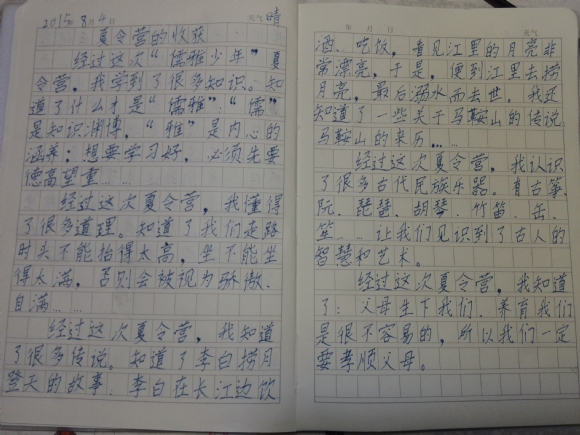 2015年 8月4日 天气 晴
夏令营的收获
经过这次“儒雅少年”夏
令营，我学到了很多知识。知
道了什么才是“儒雅”：“儒”
是知识渊博，“雅”是内心的
涵养；想要学习好，必须先要
德高望重……
经过这次夏令营，我懂得
了很多道理。知道了我们走路
时头不能抬得太高，坐不能坐
得太满，否则会被视为骄傲、
自满……
经过这次夏令营，我知道
了很多传说。知道了李白捞月
登天的故事，李白在长江边饮
年 月 日 天气
酒、吃饭，看见江里的月亮非
常漂亮，于是，便到江里去捞
月亮，最后溺水而去世。我还
知道了一些关于马鞍山的传说
马鞍山的来历……
经过这次夏令营，我认识
了很多古代民族乐器。有古筝、
阮、琵琶、胡琴、竹笛、缶、
笙……让我们见识到了古人的
智慧和艺术。
经过这次夏令营，我知道
了：父母生下我们、养育我们
是很不容易的，所以我们一定
要孝顺父母。